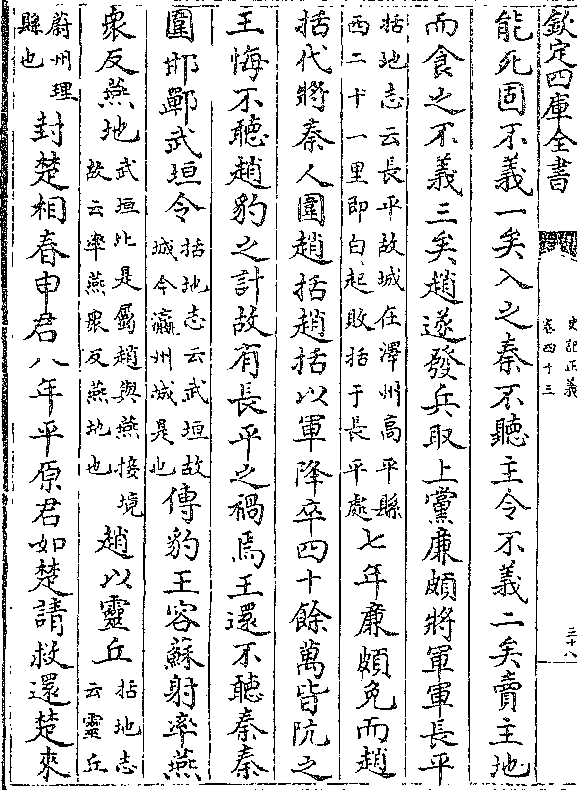 欽定四庫全書
史記正義
卷四十三
三十八
能死固不義一矣入之秦不聽主令不義二矣賣主地
而食之不義三矣趙遂發兵取上黨廉頗將軍軍長平
括地志云長平故城在澤州高平縣
西二十一里即白起敗括于長平處
七年廉頗免而趙
括代將秦人圍趙括趙括以軍降卒四十餘萬皆阬之
王悔不聽趙豹之計故有長平之禍焉王還不聽秦秦
圍邯鄲武垣令
括地志云武垣故
城今瀛州城是也
傅豹王容蘇射率燕
衆反燕地
武垣此是屬趙與燕接境
故云率燕衆反燕地也
趙以靈丘
括地志
云靈丘
蔚州理
縣也
封楚相春申君八年平原君如楚請救還楚來